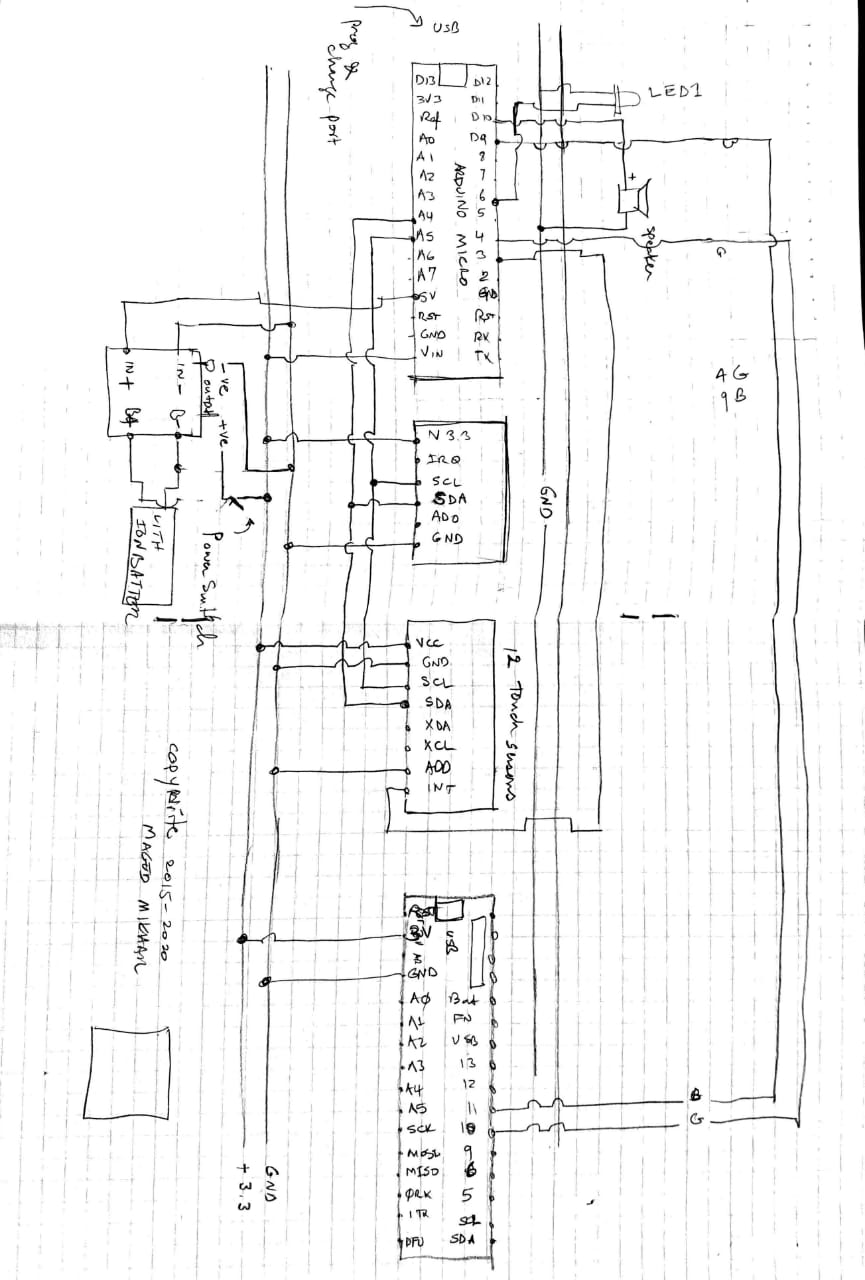 4 G
9 B
B
G
B
G
LED1
+
speaker
B
GND
12 Touch sensons
D12
D11
D10
D9
8
7
6
5
4
3
2
GND
Rst
RX
TX
ARDUINO MICRO
D13
3V3
Ref
A0
A1
A2
A3
A4
A5
A6
A7
5V
Rst
GND
VIN
USB
prog &
charge port
V3.3
IRQ
SCL
SDA
ADD
GND
VCC
GND
SCL
SDA
XDA
XCL
ADD
INT
Bat
EN
USB
13
12
11
10
9
6
5
SCL
SDA
USB
Rst
3V
GND
A0
A1
A2
A3
A4
A5
SCK
MOSI
MISO
DFU
GND
+ 3.3
-ve
+ve
output
Power Switch
IN-
B-
IN+
B+
LITH
ION BATTER
COPYRite 2015-2020
MAGED MIKHAIL